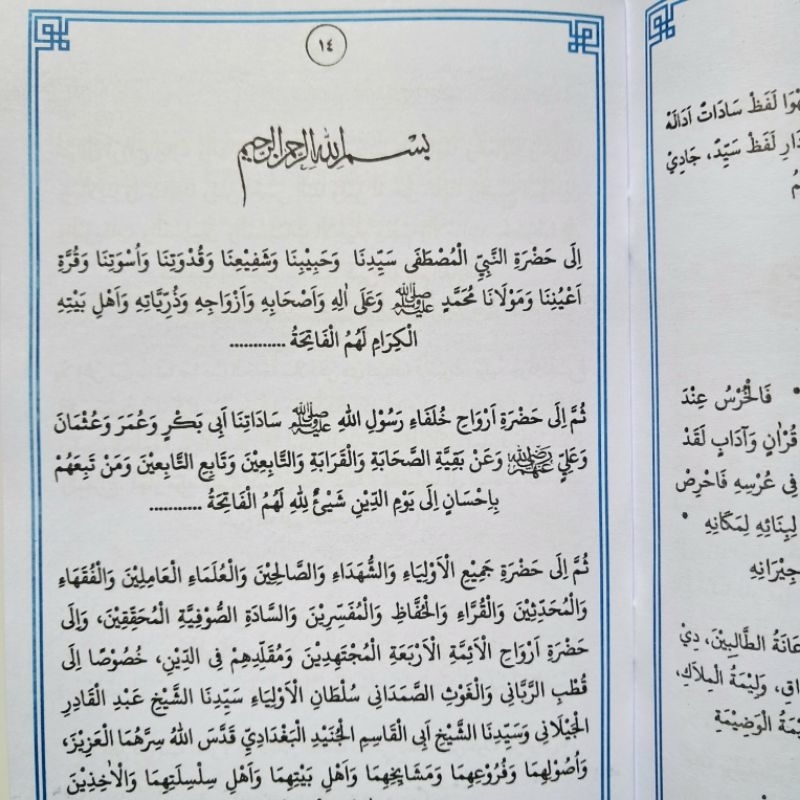 ١٤
بسم الله الرحمن الرحيم
اِلَى حَضْرَةِ النَّبِيِّ الْمُصْطَفَى سَيِّدِنَا وَحَبِيْبِنَا وَشَفِيْعِنَا وَقُدْوَتِنَا وَاُسْوَتِنَا وَقُرَّةِ
اَعْيُنِنَا وَمَوْلَانَا مُحَمَّدٍ ﷺ وَعَلَى اٰلِهِ وَاَصْحَابِهِ وَاَزْوَاجِهِ وَذُرِّيَّاتِهِ وَاَهْلِ بَيْتِهِ
الْكِرَامِ لَهُمُ الْفَاتِحَةُ ............
ثُمَّ اِلَى حَضْرَةِ اَرْوَاحِ خُلَفَاءِ رَسُوْلِ اللهِ ﷺ سَادَاتِنَا اَبِى بَكْرٍ وَعُمَرَ وَعُثْمَانَ
وَعَلِيٍّ وَعَنْ بَقِيَّةِ الصَّحَابَةِ وَالْقَرَابَةِ وَالتَّابِعِيْنَ وَتَابِعِ التَّابِعِيْنَ وَمَنْ تَبِعَهُمْ
بِاِحْسَانٍ اِلَى يَوْمِ الدِّيْنِ شَيْئٌ لِلّٰهِ لَهُمُ الْفَاتِحَةُ ...........
ثُمَّ اِلَى حَضْرَةِ جَمِيْعِ الْاَوْلِيَاءِ وَالشُّهَدَاءِ وَالصَّالِحِيْنَ وَالْعُلَمَاءِ الْعَامِلِيْنَ وَالْفُقَهَاءِ
وَالْمُحَدِّثِيْنَ وَالْقُرَّاءِ وَالْحُفَّاظِ وَالْمُفَسِّرِيْنَ وَالسَّادَةِ الصُّوْفِيَّةِ الْمُحَقِّقِيْنَ، وَاِلَى
حَضْرَةِ اَرْوَاحِ الْاَئِمَّةِ الْاَرْبَعَةِ الْمُجْتَهِدِيْنَ وَمُقَلِّدِهِمْ فِى الدِّيْنِ، خُصُوْصًا اِلَى
قُطْبِ الرَّبَّانِى وَالْغَوْثِ الصَّمَدَانِى سُلْطَانِ الْاَوْلِيَاءِ سَيِّدِنَا الشَّيْخِ عَبْدِ الْقَادِرِ
الْجَيْلَانِى وَسَيِّدِنَا الشَّيْخِ اَبِى الْقَاسِمِ الْجُنَيْدِ الْبَغْدَادِيِّ قَدَّسَ اللهُ سِرَّهُمَا الْعَزِيْزَ،
وَاُصُوْلِهِمَا وَفُرُوْعِهِمَا وَمَشَايِخِهِمَا وَاَهْلِ بَيْتِهِمَا وَاَهْلِ سِلْسِلَتِهِمَا وَالْاٰخِذِيْنَ
لَفَظْ سَادَاتْ اَدَالَهْ
لَفَظْ سَيِّدْ، جَادِيْ
فَالْخُرْسُ عِنْدَ
قُرْاٰنٍ وَآدَابٍ لَقَدْ
فِى عُرْسِهِ فَاحْرِصْ
لِبِنَائِهِ لِمَكَانِهِ *
جِيْرَانِهِ
الطَّالِبِيْنَ، دِيْ
وَلِيْمَةُ الْمِلَاكِ،
الْوَضِيْمَةِ